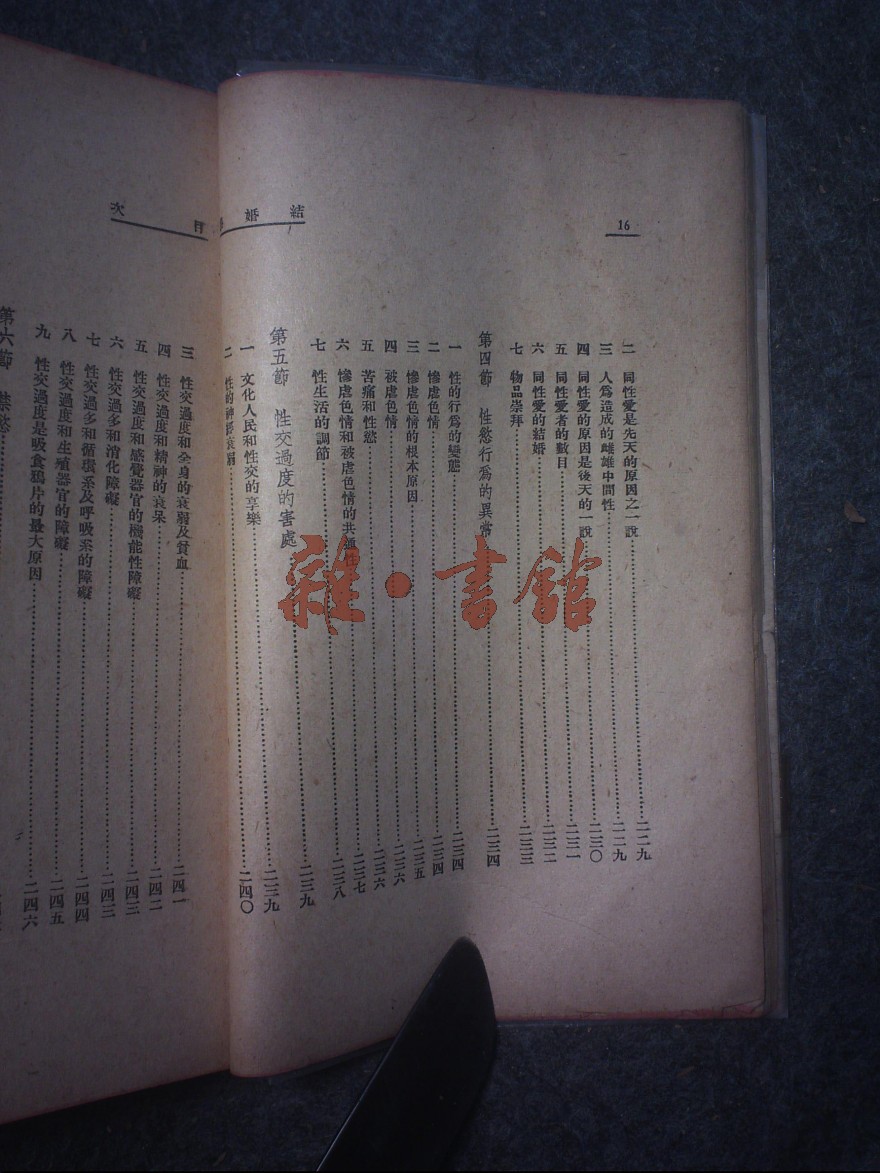 16
結婚
目次
二 同性愛是先天的原因之一說……二二九
三 人爲造成的雌雄中間性……二二九
四 同性愛的原因是後天的一說……二三〇
五 同性愛者的數目……二三一
六 同性愛的結婚……二三二
七 物品崇拜……二三三
第四節 性慾行爲的異常……二三四
一 性的行爲的變態……二三四
二 慘虐色情……二三四
三 慘虐色情的根本原因……二三五
四 被虐色情……二三六
五 苦痛和性慾……二三六
六 慘虐色情和被虐色情的共通性……二三七
七 性生活的調節……二三八
第五節 性交過度的害處……二三九
一 文化人民和性交的享樂……二三九
二 性的神經衰弱……二四〇
三 性交過度和全身的衰弱及貧血……二四一
四 性交過度和精神的衰呆……二四二
五 性交過度和感覺器官的機能性障礙……二四三
六 性交過多和消化障礙……二四三
七 性交過多和循環系及呼吸系的障礙……二四四
八 性交過度和生殖器官的障礙……二四五
九 性交過度是吸食鴉片的最大原因……二四六
第六節 禁慾……
雜·書館